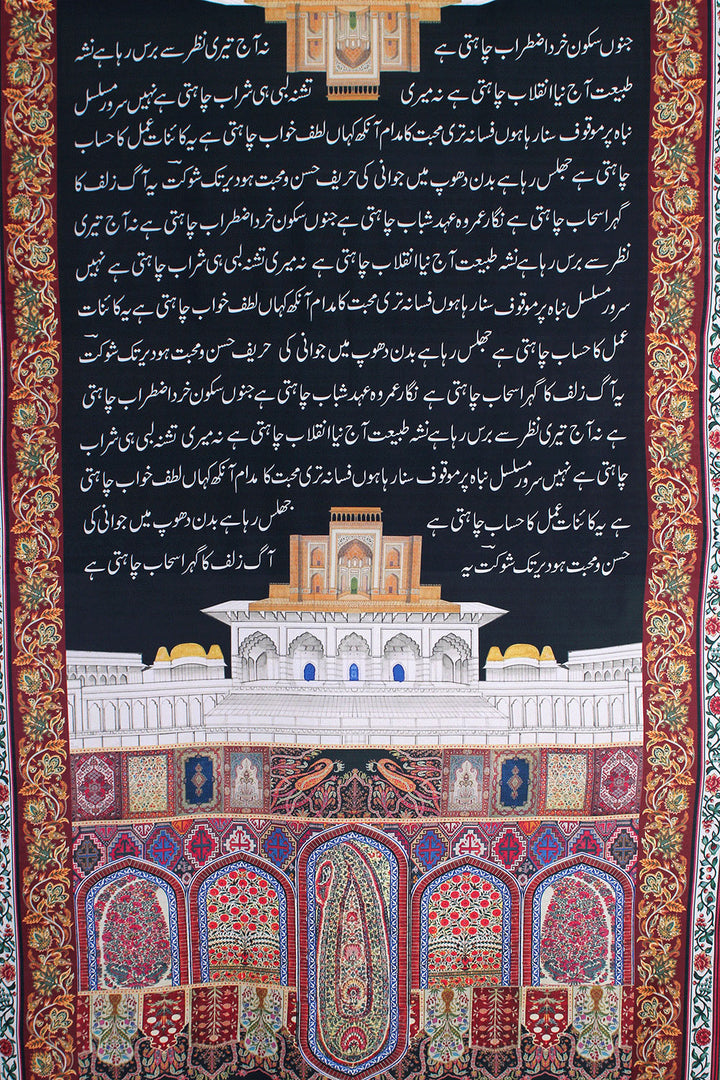 جنوں سکون خرد اضطراب چاہتی ہے نہ آج تیری نظر سے برس رہا ہے نشہ
طبیعت آج نیا انقلاب چاہتی ہے نہ میری تشنہ لبی ہی شراب چاہتی ہے نہیں سرور مسلسل
نباہ پر موقوف سنا رہا ہوں فسانہ تری محبت کا مدام آنکھ کہاں لطف خواب چاہتی ہے یہ کائنات عمل کا حساب
چاہتی ہے جھلس رہا ہے بدن دھوپ میں جوانی کی حریف حسن و محبت ہو دیر تک شوکتؔ یہ آگ زلف کا
گہرا سحاب چاہتی ہے نگار عمر وہ عہد شباب چاہتی ہے جنوں سکون خرد اضطراب چاہتی ہے نہ آج تیری
نظر سے برس رہا ہے نشہ طبیعت آج نیا انقلاب چاہتی ہے نہ میری تشنہ لبی ہی شراب چاہتی ہے نہیں
سرور مسلسل نباہ پر موقوف سنا رہا ہوں فسانہ تری محبت کا مدام آنکھ کہاں لطف خواب چاہتی ہے یہ کائنات
عمل کا حساب چاہتی ہے جھلس رہا ہے بدن دھوپ میں جوانی کی حریف حسن و محبت ہو دیر تک شوکتؔ
یہ آگ زلف کا گہرا سحاب چاہتی ہے نگار عمر وہ عہد شباب چاہتی ہے جنوں سکون خرد اضطراب چاہتی
ہے نہ آج تیری نظر سے برس رہا ہے نشہ طبیعت آج نیا انقلاب چاہتی ہے نہ میری تشنہ لبی ہی شراب
چاہتی ہے نہیں سرور مسلسل نباہ پر موقوف سنا رہا ہوں فسانہ تری محبت کا مدام آنکھ کہاں لطف خواب چاہتی
ہے یہ کائنات عمل کا حساب چاہتی ہے جھلس رہا ہے بدن دھوپ میں جوانی کی
حسن و محبت ہو دیر تک شوکتؔ یہ آگ زلف کا گہرا سحاب چاہتی ہے